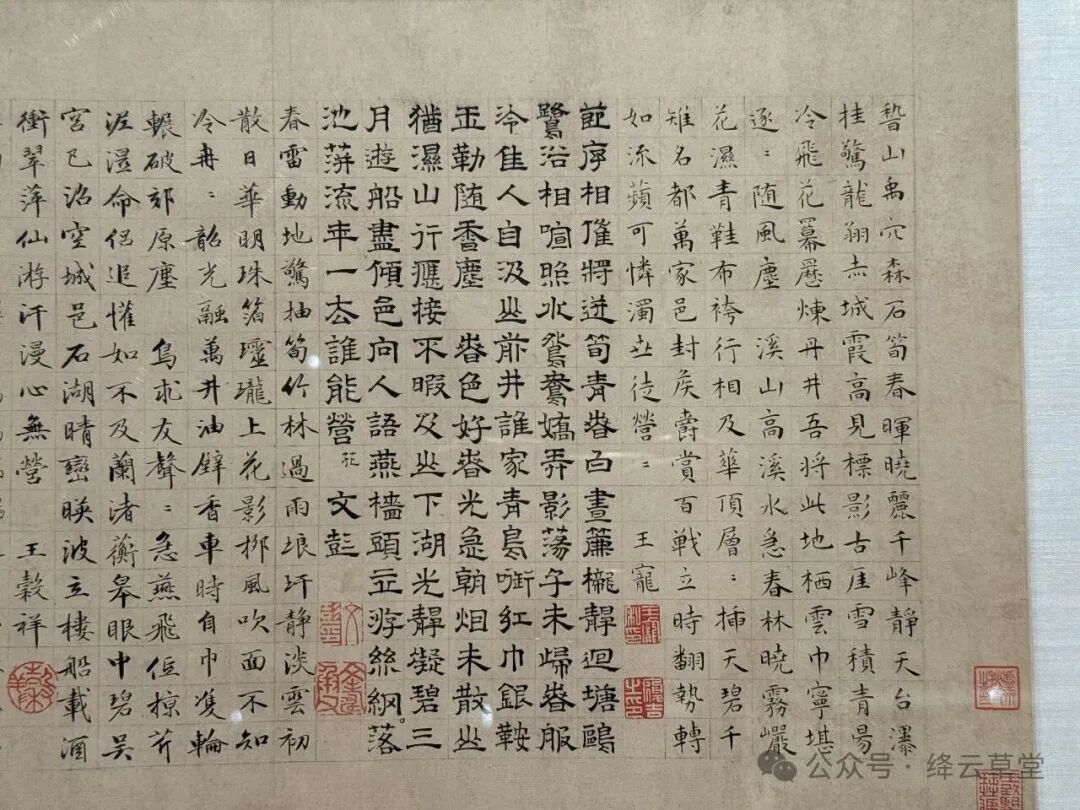 山禹穴森石筍春暉曉麗千峰靜天台瀑
桂驚龍翔赤城霞高見標影古厓雪積青昜
冷飛花幕煉丹井吾將此地栖雲巾寧堪
逐：隨風塵 溪山高溪水急春林曉霧巖
花濕青鞋布袴行相及華頂層：插天碧千
雉名都萬家邑封矦爵賞百戰立時翻勢轉
如流蘋可憐濁世徒營：王寵
節序相催將迸筍青春白晝簾櫳靜迴塘鷗
鷺浴相喧照水鴛鴦嬌弄影蕩子未歸春服
冷佳人自汲山前井誰家青鳥銜紅巾銀鞍
玉勒随香塵 春色好春光急朝烟未散山
猶濕山行應接不暇及山下湖光靜凝碧三
月遊船盡傾邑向人語燕檣頭立游絲網落
池萍流年一去誰能營 文彭
春雷動地驚抽筍竹林過雨垠圩靜淡雲初
散日華明珠箔瓏上花影柳風吹面不知
冷冉：韶光融萬井油壁香車時自巾隻輪
輾破郊原塵 鳥求友聲：急燕飛低掠芹
泥濕命侶追懽如不及蘭渚蘅皋眼中碧吳
宮已沼空城邑石湖晴巒暎波立樓船載酒
衝翠萍仙游汗漫心無營 王榖祥
公众号·绛云草堂